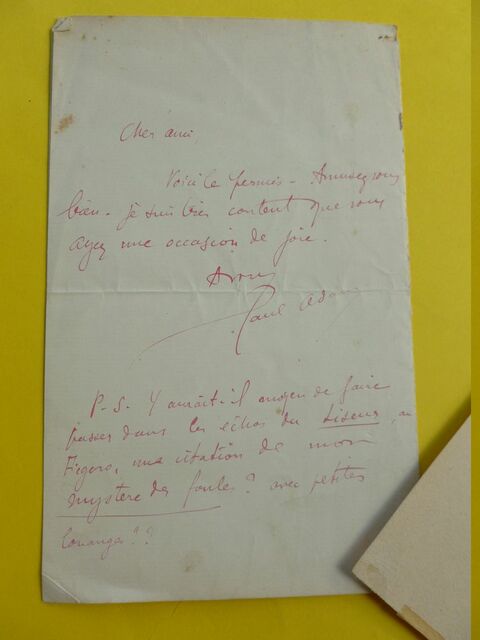 Cher ami,
Voici le permis – Amusez vous
bien. je suis très content que vous
ayez une occasion de joie.
A vous
Paul Adam
P.S. Y aurait-il moyen de faire
passer dans les échos du Liseur, au
Figaro, une citation de mon
mystère des foules? avec petites
louanges??